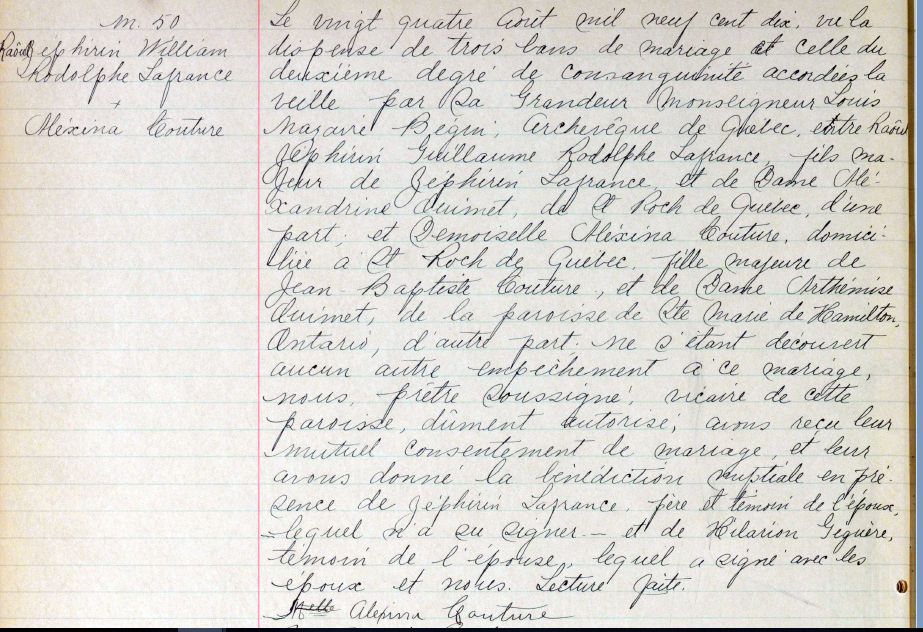 M. 50
Raoul Zéphirin William
Rodolphe Lafrance
+
Aléxina Couture
Le vingt quatre Août mil neuf cent dix, vu la
dispense de trois bans de mariage et celle du
deuxième degré de consanguinité accordées la
veille par Sa Grandeur Monseigneur Louis
Nazaire Bégin, Archevêque de Québec, entre Raoul
Zéphirin Guillaume Rodolphe Lafrance, fils ma-
jeur de Zéphirin Lafrance, et de Dame Alé-
xandrine Ouimet, de St Roch de Québec, d'une
part; et Demoiselle Aléxina Couture, domici-
liée à St Roch de Québec, fille majeure de
Jean-Baptiste Couture, et de Dame Arthémise
Ouimet, de la paroisse de Ste Marie de Hamilton,
Ontario, d'autre part; ne s'étant découvert
aucun autre empêchement à ce mariage,
nous, prêtre soussigné, vicaire de cette
paroisse, dûment autorisé, avons reçu leur
mutuel consentement de mariage, et leur
avons donné la bénédiction nuptiale en pré-
sence de Zéphirin Lafrance, père et témoin de l'époux,
lequel n'a su signer - et de Hilarion Giguère,
témoin de l'épouse, lequel a signé avec les
époux et nous. Lecture faite.
Melle Alexina Couture